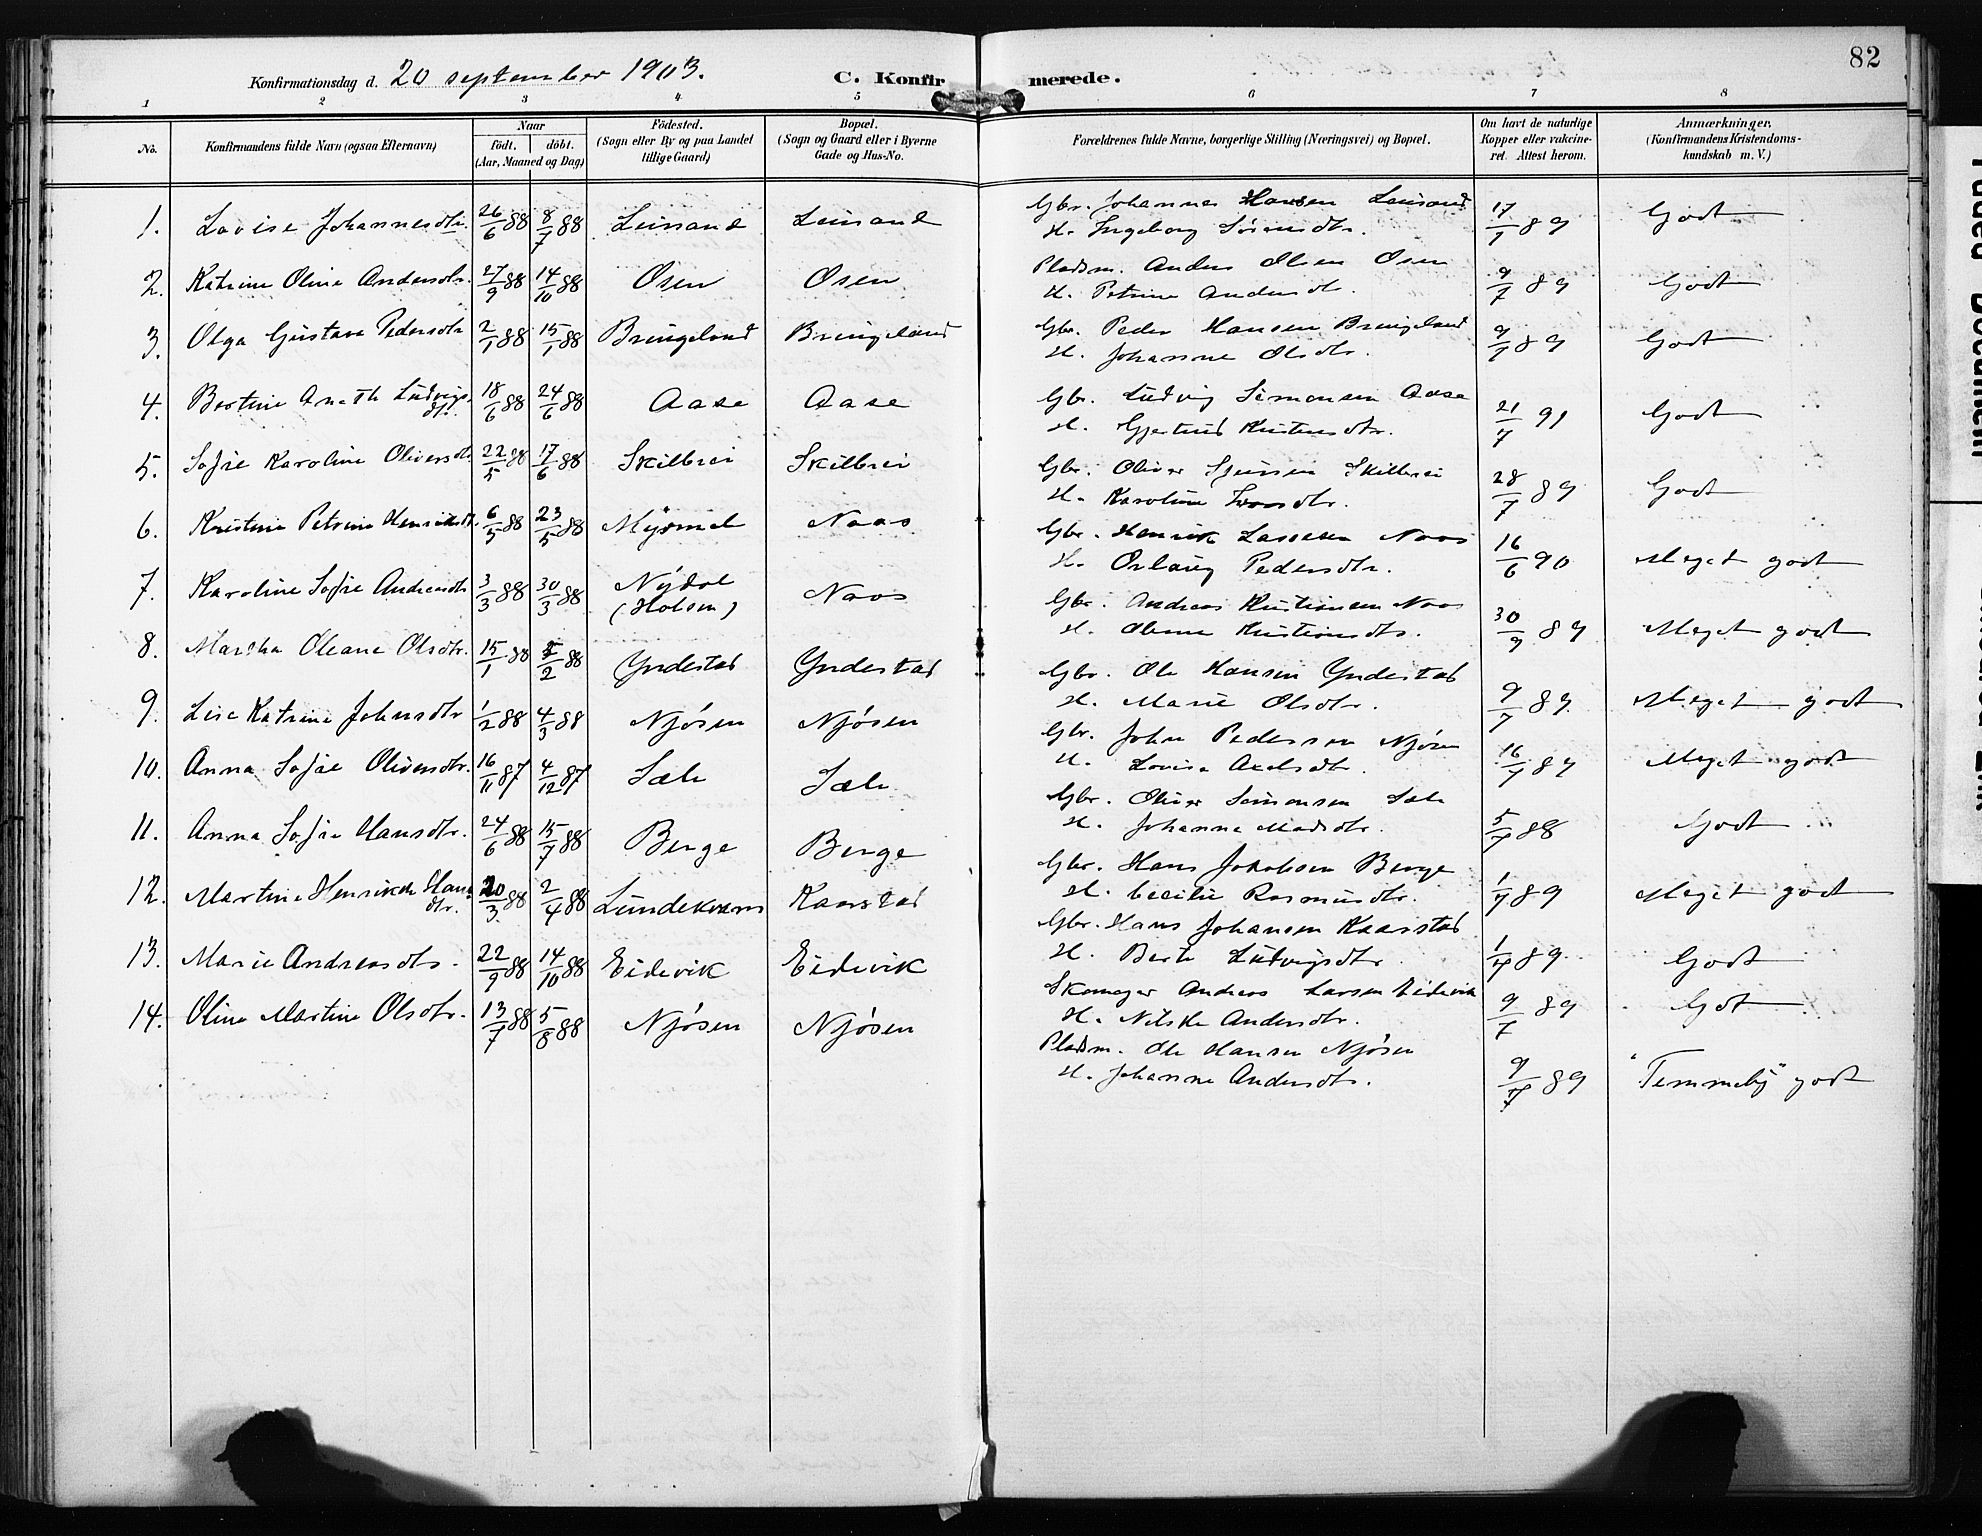 82
Konfirmationsdag d. 20 september 1903. C. Konfirmerede.
1 2 3 4 5 6 7 8
No. Konfirmandens fulde Navn (ogsaa Efternavn) Naar födt. döbt. (Aar, Maaned og Dag) Födested. (Sogn eller By og paa Landet tillige Gaard) Bopæl. (Sogn og Gaard eller i Byerne Gade og Hus-No. Forældrenes fulde Navne, borgerlige Stilling (Næringsvei) og Bopæl. Om havt de naturlige Kopper eller vakcineret. Attest herom. Anmærkninger. (Konfirmandens Kristendomskundskab m. V.)
1. Lovise Johannesdtr. 26/6 88 8/7 88 Leirand Leirand Gbr. Johannes Hansen Leirand 17/7 89 Godt
H. Ingeborg Sörensdtr.
2. Katrine Oline Andersdtr. 27/9 88 14/10 88 Osen Osen Pladsm. Anders Olsen Osen 9/7 89 Godt
H. Petrine Andersdtr.
3. Olga Gustava Pedersdtr 2/1 88 15/1 88 Bringeland Bringeland Gbr. Peder Hansen Bringeland 9/7 89 Godt
H. Johanne Olsdtr.
4. Bertine Aneth Ludvigsdtr. 18/6 88 24/6 88 Aase Aase Gbr. Ludvig Simonsen Aase 21/7 91 Godt
H. Gjertrud Kristensdtr.
5. Sofie Karoline Oliversdtr. 22/5 88 17/6 88 Skilbrei Skilbrei Gbr. Oliver Skilbrei 28/7 89 Godt
H. Karoline
6. Kristine Petrine Henriksdtr. 6/5 88 23/5 88 Myrmel Naas Gbr. Henrik Lassesen Naas 16/6 90 Meget godt
H. Orlaug Pedersdtr.
7. Karoline Sofie Andreasdtr 3/3 88 30/3 88 Nydal (Holsen) Naas Gbr. Andreas Kristiansen Naas 30/9 89 Meget godt
H. Kristiansdtr.
8. Martha Oleane Olsdtr. 15/1 88 5/2 88 Yndestad Yndestad Gbr. Ole Hansen Yndestad 9/7 89 Meget godt
H. Marie Olsdtr.
9. Lise Katrine Johnsdtr 1/2 88 4/3 88 Njösen Njösen Gbr. John Pedersen Njösen 16/7 89 Meget godt
H. Lovise Axelsdtr.
10. Anna Sofie Oliversdtr. 16/11 87 4/12 87 Sæle Sæle Gbr. Oliver Simonsen Sæle 5/7 88 Godt
H. Johanne Madsdtr.
11. Anna Sofie Hansdtr. 24/6 88 15/7 88 Berge Berge Gbr. Hans Jakobsen Berge 1/7 89 Meget godt
H. Cecilie Rasmusdtr.
12. Martine Henrikke Hansdtr. 20/3 88 2/4 88 Lundekvam Kaarstad Gbr. Hans Johansen Kaarstad 1/7 89 Godt
H. Berte Ludvigsdtr
13. Marie Andreasdtr. 22/9 88 14/10 88 Eidevik Eidevik Skomager Andreas Larsen Eidevik 9/7 89 Godt
H. Nilske Andersdtr.
14. Oline Martine Olsdtr. 13/7 88 5/8 88 Njösen Njösen Pladsm. Ole Hansen Njösen 9/7 89 "Temmelig" godt
H. Johanne Andersdtr.